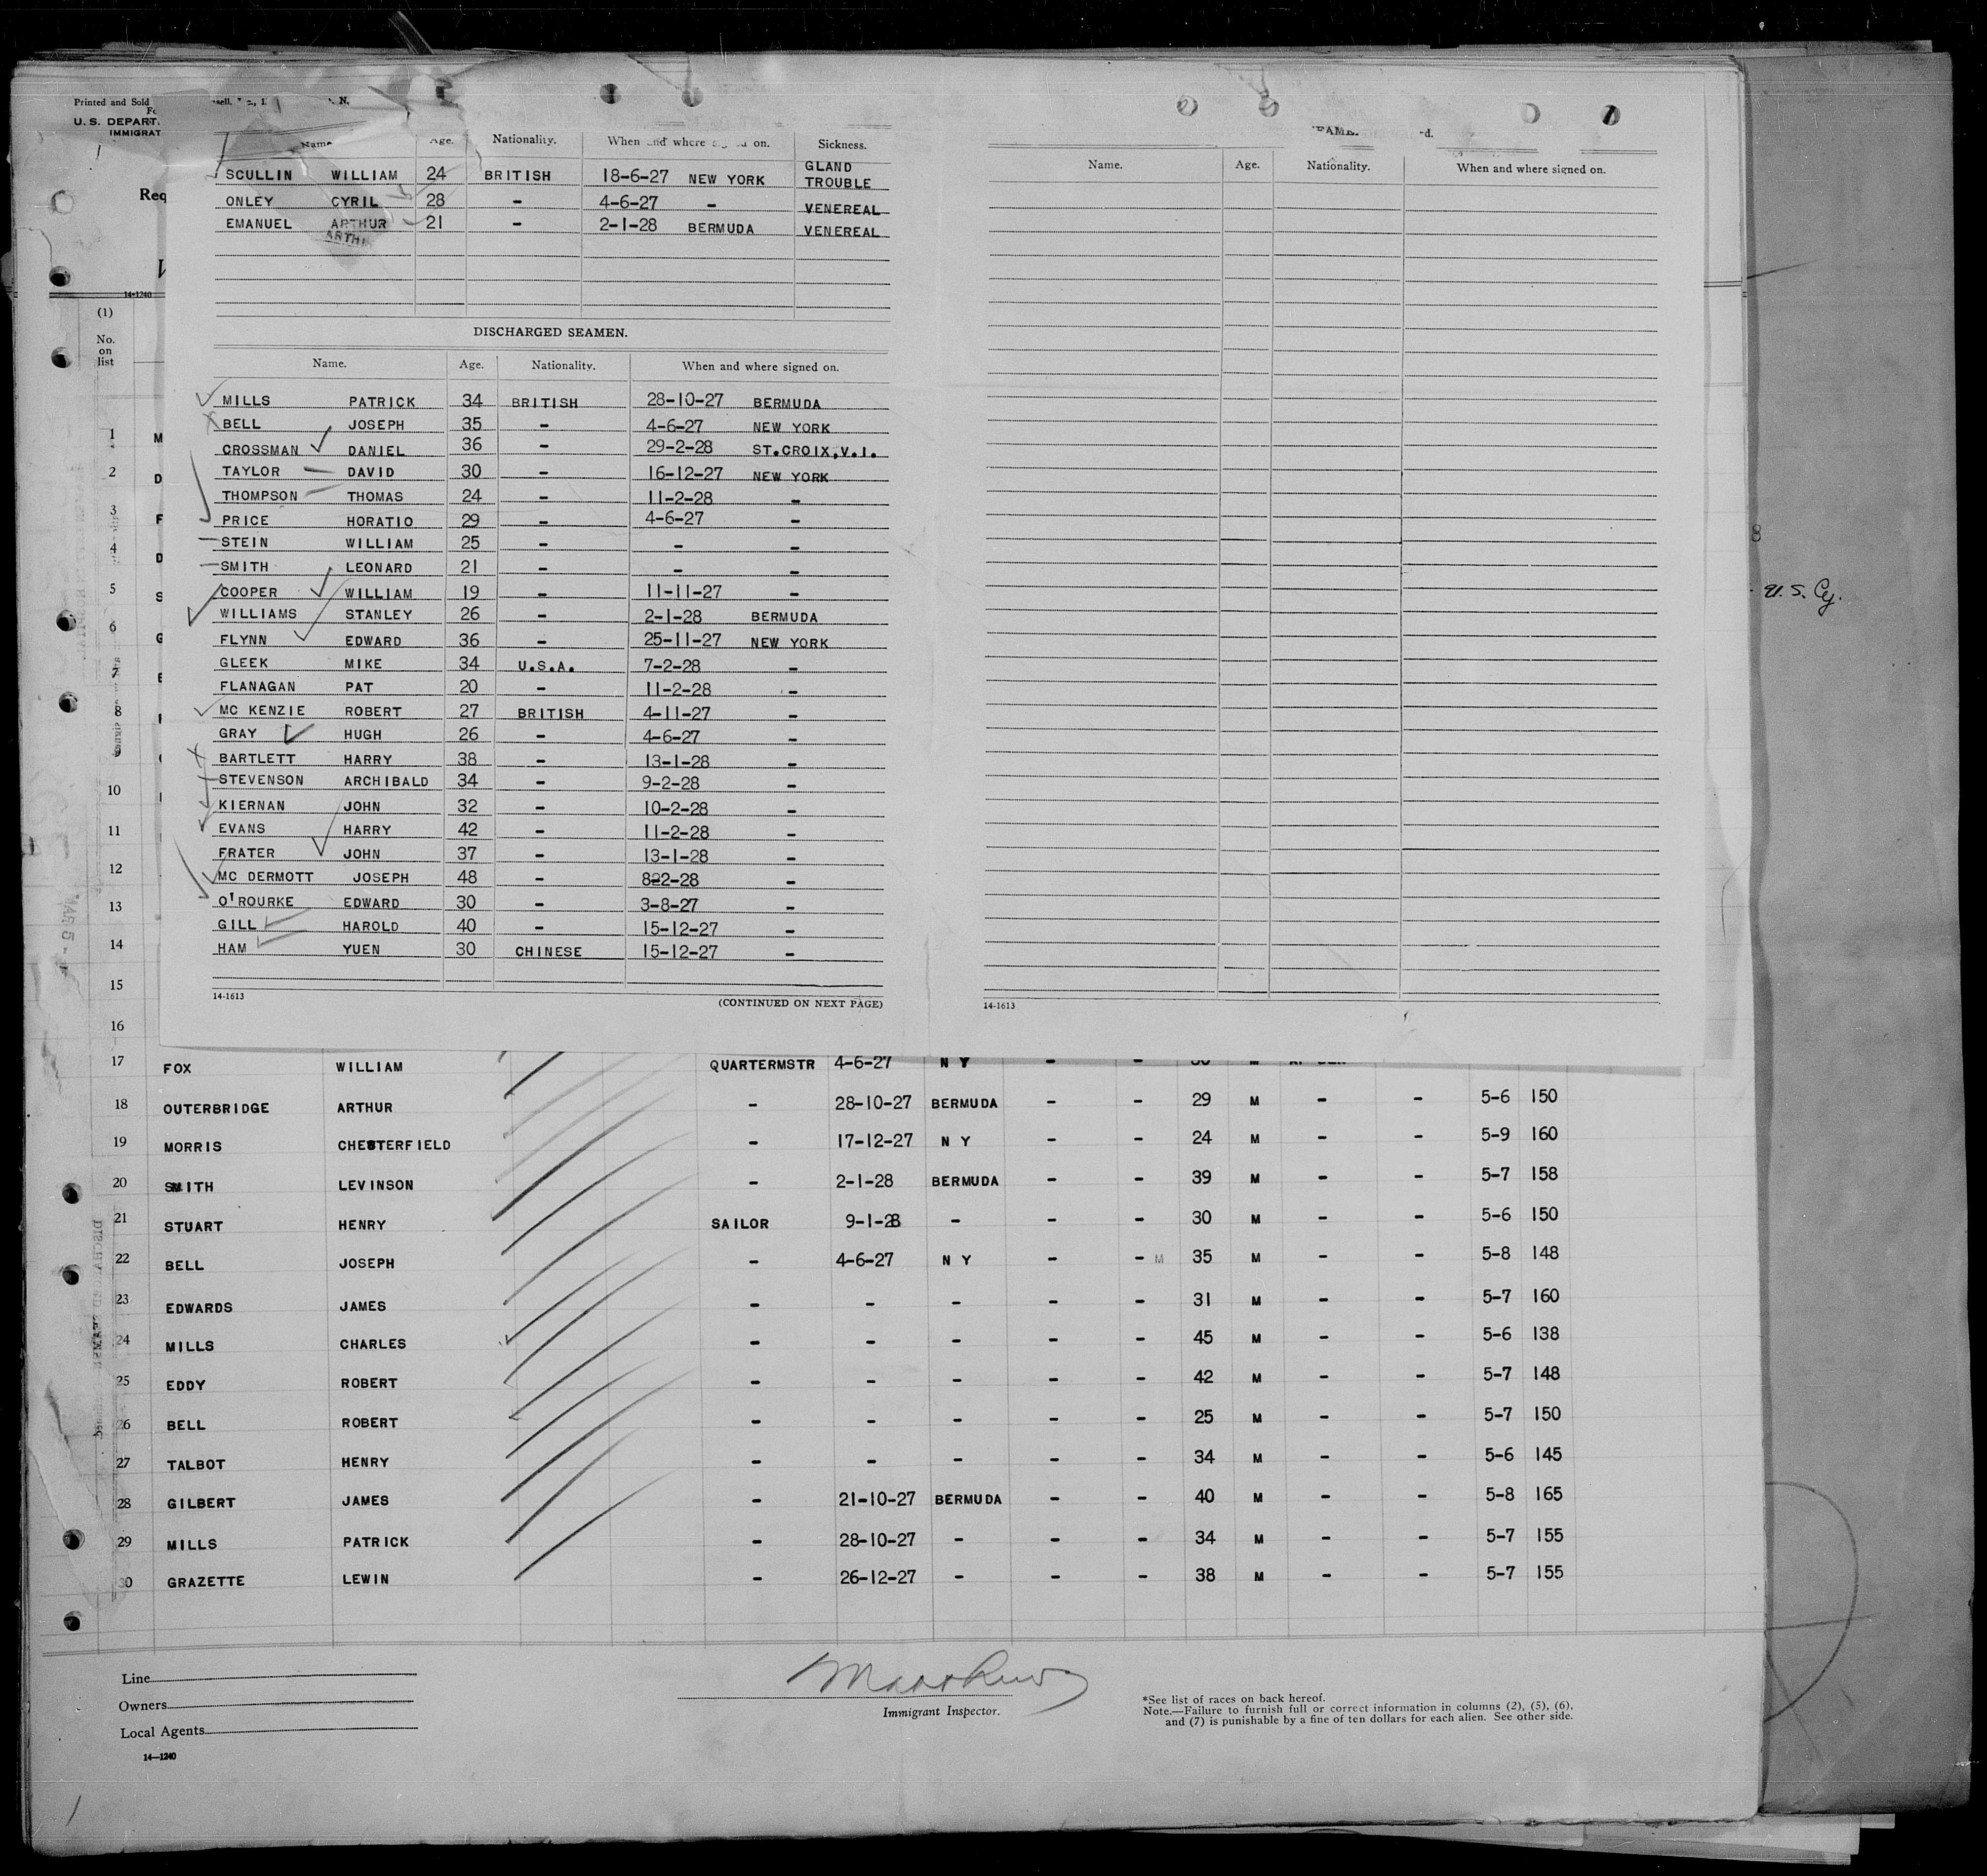 Printed and Sold
U. S. DEPART
IMMIGRAT
Req
14-1240
(1)
No.
on
list
Name Age. Nationality. When and where signed on. Sickness.
SCULLIN WILLIAM 24 BRITISH 18-6-27 NEW YORK GLAND TROUBLE
ONLEY CYRIL 28 - 4-6-27 - VENEREAL
EMANUEL ARTHUR 21 - 2-1-28 BERMUDA VENEREAL
DISCHARGED SEAMEN.
Name. Age. Nationality. When and where signed on.
MILLS PATRICK 34 BRITISH 28-10-27 BERMUDA
BELL JOSEPH 35 - 4-6-27 NEW YORK
CROSSMAN DANIEL 36 - 29-2-28 ST.CROIX,V.I.
TAYLOR DAVID 30 - 16-12-27 NEW YORK
THOMPSON THOMAS 24 - 11-2-28 -
PRICE HORATIO 29 - 4-6-27 -
STEIN WILLIAM 25 - - -
SMITH LEONARD 21 - - -
COOPER WILLIAM 19 - 11-11-27 -
WILLIAMS STANLEY 26 - 2-1-28 BERMUDA
FLYNN EDWARD 36 - 25-11-27 NEW YORK
GLEEK MIKE 34 U.S.A. 7-2-28 -
FLANAGAN PAT 20 - 11-2-28 -
MC KENZIE ROBERT 27 BRITISH 4-11-27 -
GRAY HUGH 26 - 4-6-27 -
BARTLETT HARRY 38 - 13-1-28 -
STEVENSON ARCHIBALD 34 - 9-2-28 -
KIERNAN JOHN 32 - 10-2-28 -
EVANS HARRY 42 - 11-2-28 -
FRATER JOHN 37 - 13-1-28 -
MC DERMOTT JOSEPH 48 - 8-2-28 -
O'ROURKE EDWARD 30 - 3-8-27 -
GILL HAROLD 40 - 15-12-27 -
HAM YUEN 30 CHINESE 15-12-27 -
14-1613 (CONTINUED ON NEXT PAGE)
Name. Age. Nationality. When and where signed on.
14-1613
U.S. Cy.
1 M
2 D
3 F
4 D
5 S
6 G
7 E
8
9
10
11
12
13
14
15
16
17 FOX WILLIAM QUARTERMSTR 4-6-27 N Y - -
18 OUTERBRIDGE ARTHUR - 28-10-27 BERMUDA - - 29 M - - 5-6 150
19 MORRIS CHESTERFIELD - 17-12-27 N Y - - 24 M - - 5-9 160
20 SMITH LEVINSON - 2-1-28 BERMUDA - - 39 M - - 5-7 158
21 STUART HENRY SAILOR 9-1-28 - - - 30 M - - 5-6 150
22 BELL JOSEPH - 4-6-27 N Y - - M 35 M - - 5-8 148
23 EDWARDS JAMES - - - - - 31 M - - 5-7 160
24 MILLS CHARLES - - - - - 45 M - - 5-6 138
25 EDDY ROBERT - - - - - 42 M - - 5-7 148
26 BELL ROBERT - - - - - 25 M - - 5-7 150
27 TALBOT HENRY - - - - - 34 M - - 5-6 145
28 GILBERT JAMES - 21-10-27 BERMUDA - - 40 M - - 5-8 165
29 MILLS PATRICK - 28-10-27 - - - 34 M - - 5-7 155
30 GRAZETTE LEWIN - 26-12-27 - - - 38 M - - 5-7 155
Line
Owners
Local Agents
14-1240
Immigrant Inspector.
*See list of races on back hereof.
Note.—Failure to furnish full or correct information in columns (2), (5), (6),
and (7) is punishable by a fine of ten dollars for each alien. See other side.